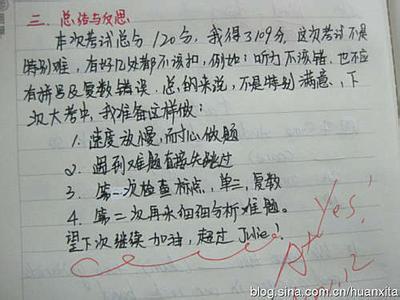 三. 总结与反思
本次考试总分120分，我得了109分，这次考试不是
特别难，有好几处都不该扣，例如：听力不该错，也不应
有拼写及复数错误，总的来说，不是特别满意，下
次大考中，我准备这样做：
1. 速度放慢，耐心做题
2. 遇到难题直接先跳过
3. 第一次检查标点，单三，复数
4. 第二次再来细细分析难题。
望下次继续加油，超过Julie！
Yes!
A+
blog.sina.com.cn/huanxita